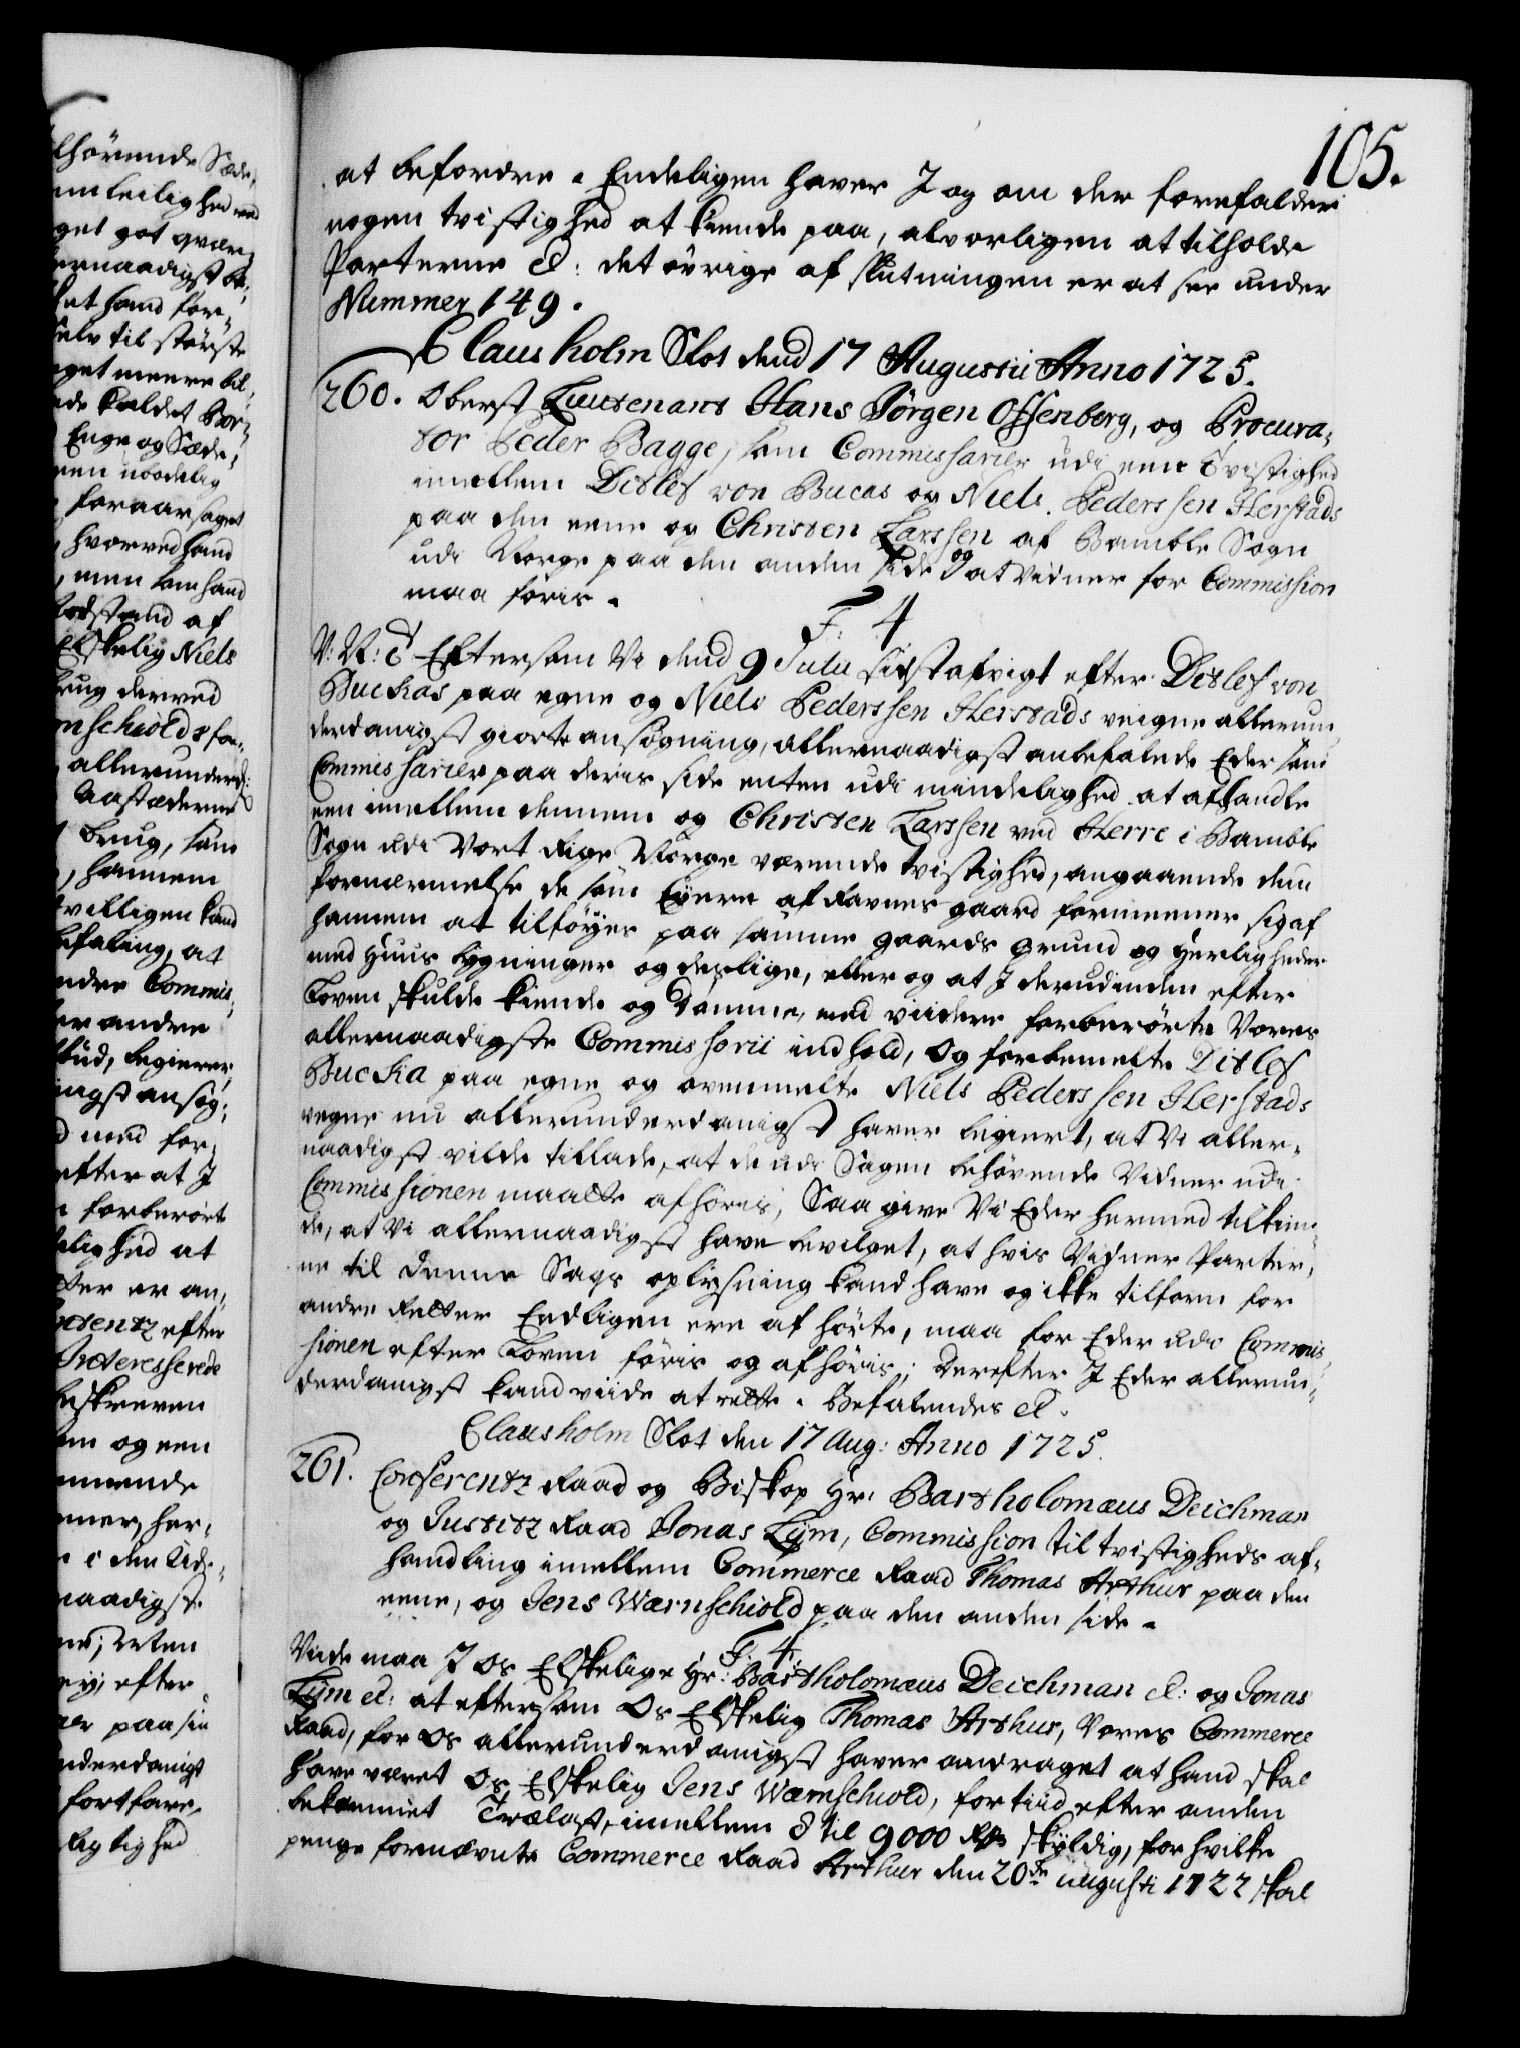 105.
at befordre. Endeligen haver I og om der forefalder
nogen tvistighed at kiende paa, alvorligen at tilholde
Parterne &: det övrige af slutningen er at see under
Nummer 149.
Clausholm Slot dend 17 Augustii Anno 1725.
260. Oberst Lieutenant Hans Jörgen Offenberg, og Procura-
tor Peder Bagge, som Commissarier udi een Tvistighed
imellem Ditlef von Bucas og Niels Pederssen Herstads
paa den eene og Christen Larssen af Bamble Sogn
udi Norge paa den anden side og at Vidner for Commission
maa föris.
F. 4
V: V: C Eftersom Vi dend 9 Julii sidstafvigt efter Ditlef von
Buckas paa egne og Niels Pederssen Herstads veigne allerun-
derdanigst giorte ansögning, allernaadigst anbefalede Eder som
Commissarier paa deris side enten udi mindelighed at afhandle
een imellem dennem og Christen Larssen ved Herre i Bamble
Sogn udi Vort Rige Norge værende tvistighed, angaaende den
fornærmelse de som Eyere af Ravnes gaard formeener sig af
hannem at tilföyes paa samme gaards grund og herligheder
med Huus bygninger og deslige, eller og at I derudinden efter
Loven skulde kiende og Dömme, med viidere forberörte Vores
allernaadigste Commissorii indhold, Og forbemelte Ditlef
Bucka paa egne og ovenmelte Niels Pederssen Herstads
vegne nu allerunderdanigst haver begiert, at Vi aller-
naadigst vilde tillade, at de udi Sagen behövende Vidner udi
Commissionen maatte afhöres, Saa give Vi Eder hermed tilkien-
de, at Vi allernaadigst have bevilget, at hvis Vidner Parter-
ne til denne Sags oplysning kand have og ikke tilforn for
andre Retter Endligen ere afhörte, maa for Eder udi Commis-
sionen efter Loven föris og afhöris; Derefter I Eder allerun-
derdanigst kand viide at rette. Befalendes &.
Clausholm Slot den 17 Aug: Anno 1725.
261. Conferentz Raad og Biskop Hr. Bartholomæus Deichman
og Justitz Raad Jonas Lÿm, Commission til tvistigheds af-
handling imellem Commerce Raad Thomas Arthur paa den
eene, og Jens Wærnschiold paa den anden side.
F. 4.
Viide maa I Os Elskelige Hr: Bartholomæus Deichman &: og Jonas
Lÿm &: at eftersom Os Elskelig Thomas Arthur, Vores Commerce
Raad, for Os allerunderdanigst haver andraget at hand skal
have været Os Elskelig Jens Wærnschiold, for tiid efter anden
bekommet Trælast, imellem 8 til 9000 Rdr skyldig, for hvilke
penge fornævnte Commerce Raad Arthur den 20de Augusti 1722 skal